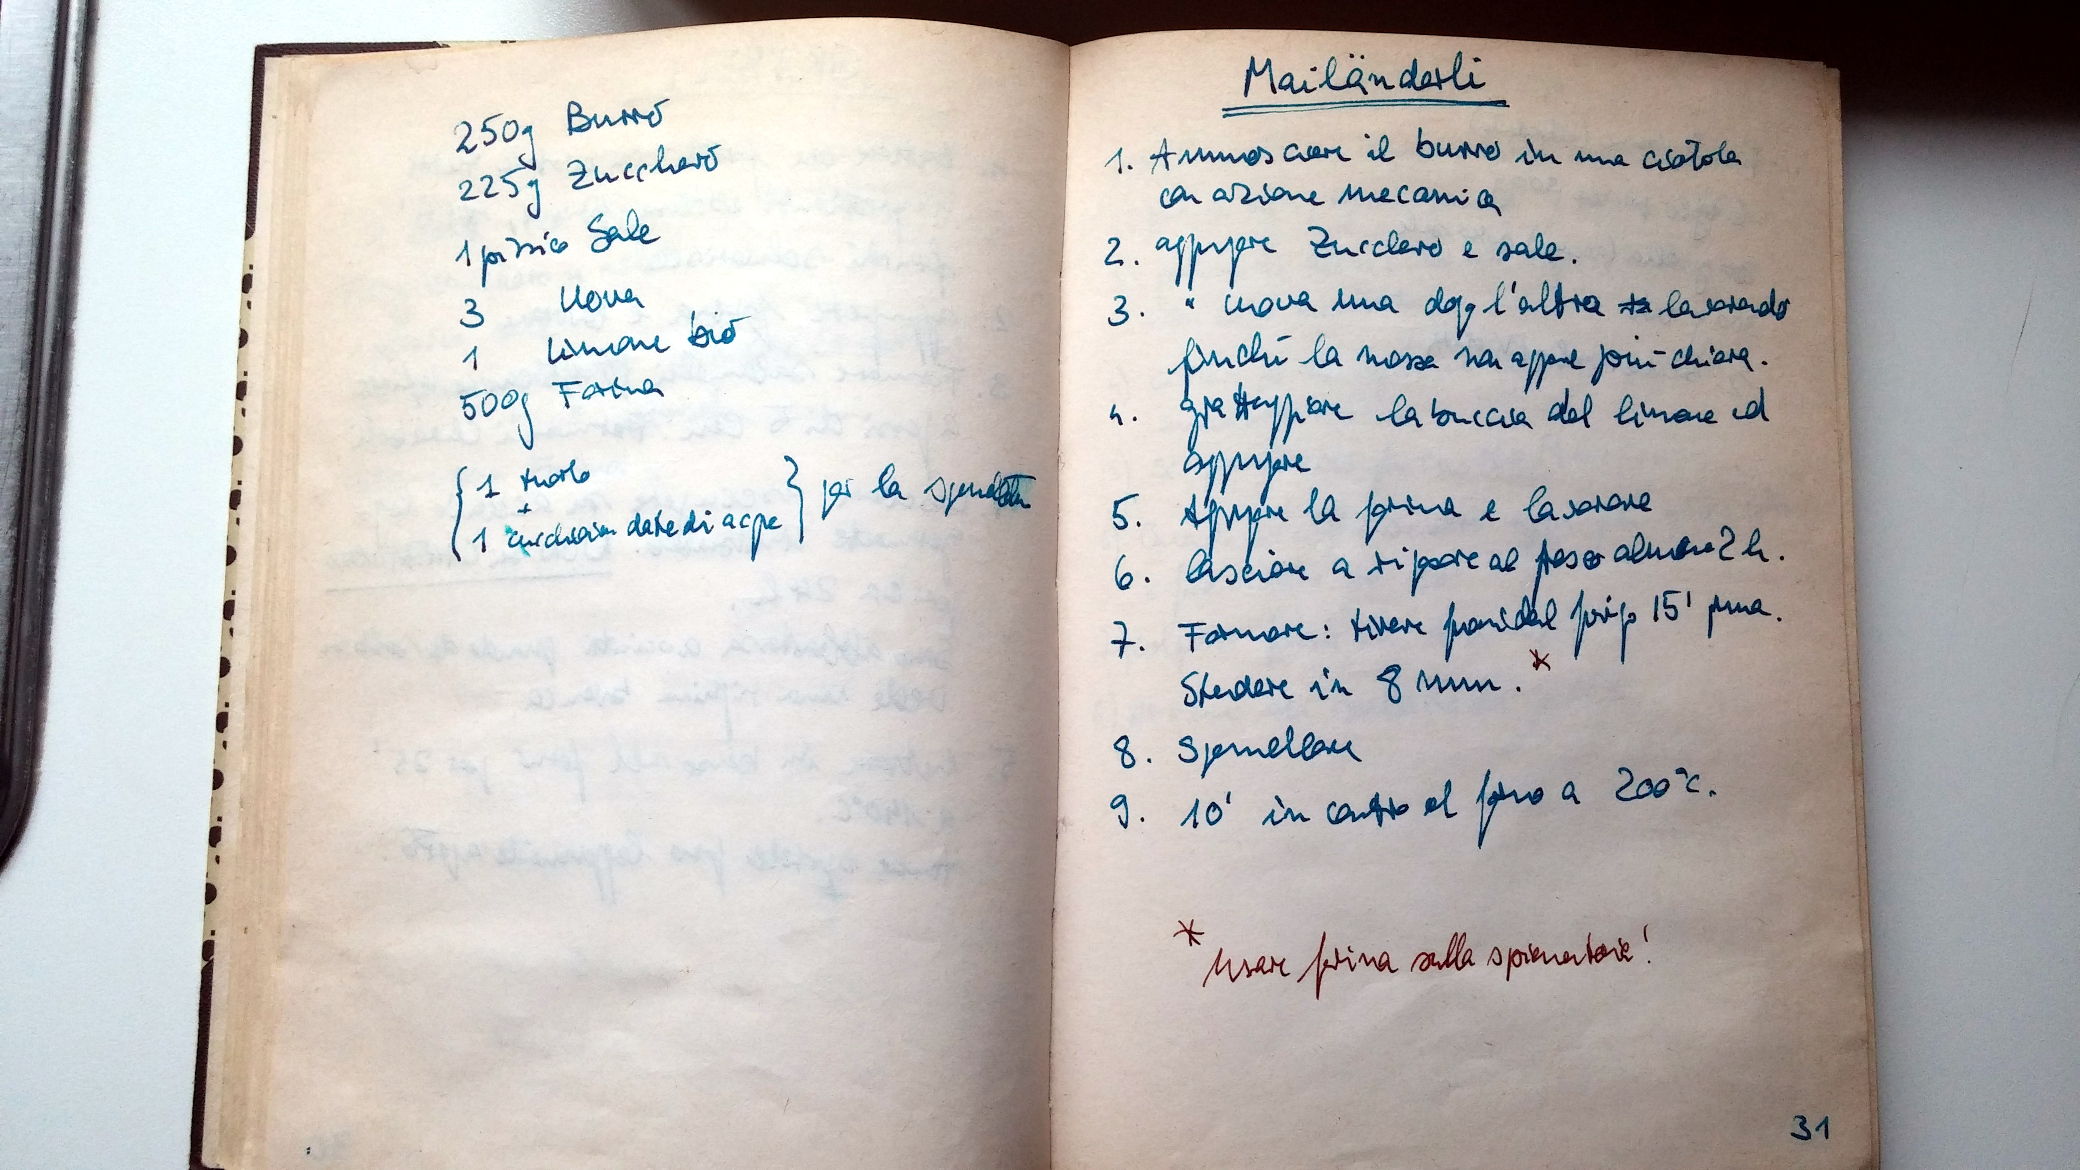 250g Burro
225g Zucchero
1 pizzico Sale
3 Uova
1 Limone bio
500g Farina
1 tuorlo
+
1 cucchiaio da tè di acqua
per la spennellata
Mailänderli
1. Ammosciare il burro in una ciotola
con azione meccanica
2. aggiungere Zucchero e sale.
3. " uova una dopo l'altra lavorando
finché la massa non appare più chiara.
4. grattuggiare la buccia del limone ed
aggiungere
5. Aggiungere la farina e lavorare
6. lasciare a riposare al fresco almeno 2 h.
7. Formare: tirare fuori dal frigo 15' prima.
Stendere in 8 mm. *
8. Spennellare
9. 10' in centro al forno a 200°C.
* Usare farina sulla spianatoia!
31